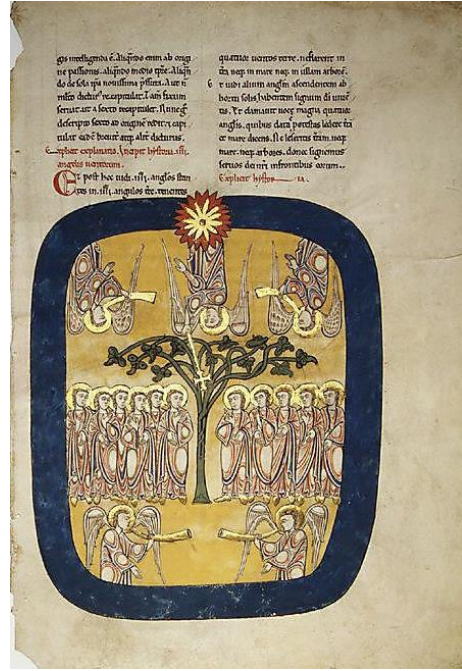 gis intelligenda ē. Aliqñdo enim ab origi
ne passionis. aliqñdo medio tp̄re. Aliqñ
do de sola ip̄a novissima p̄ssura. aut ñ
multo recapitulat. fixum
servat. ut a sexto recapitulet.
descripto sexto ad originē capi
tulat eadē atq; dicturus.
Explicit explanatio. Incipit hystoria .iiii.
anglos ventorum.
Et post hec vidi .iiii. anglos stan
tes in .iiii. angulos tr̄e. tenentes
quatuor uentos terre. ne flarent in
tr̄a neq; in mare neq; in ullam arborē.
Et uidi alium anglm̄ ascendentem ab
hortu solis. habentem signum di uiuen
tis. Et clamauit uoce magna quatuor
anglis. quibus data potestas ledere tr̄a
et mare dicens. Ne leseritis trām. neq;
mare. neq; arbores. donec signemus
seruos dei nr̄i in frontibus eorum.
Explicit hystor ia.